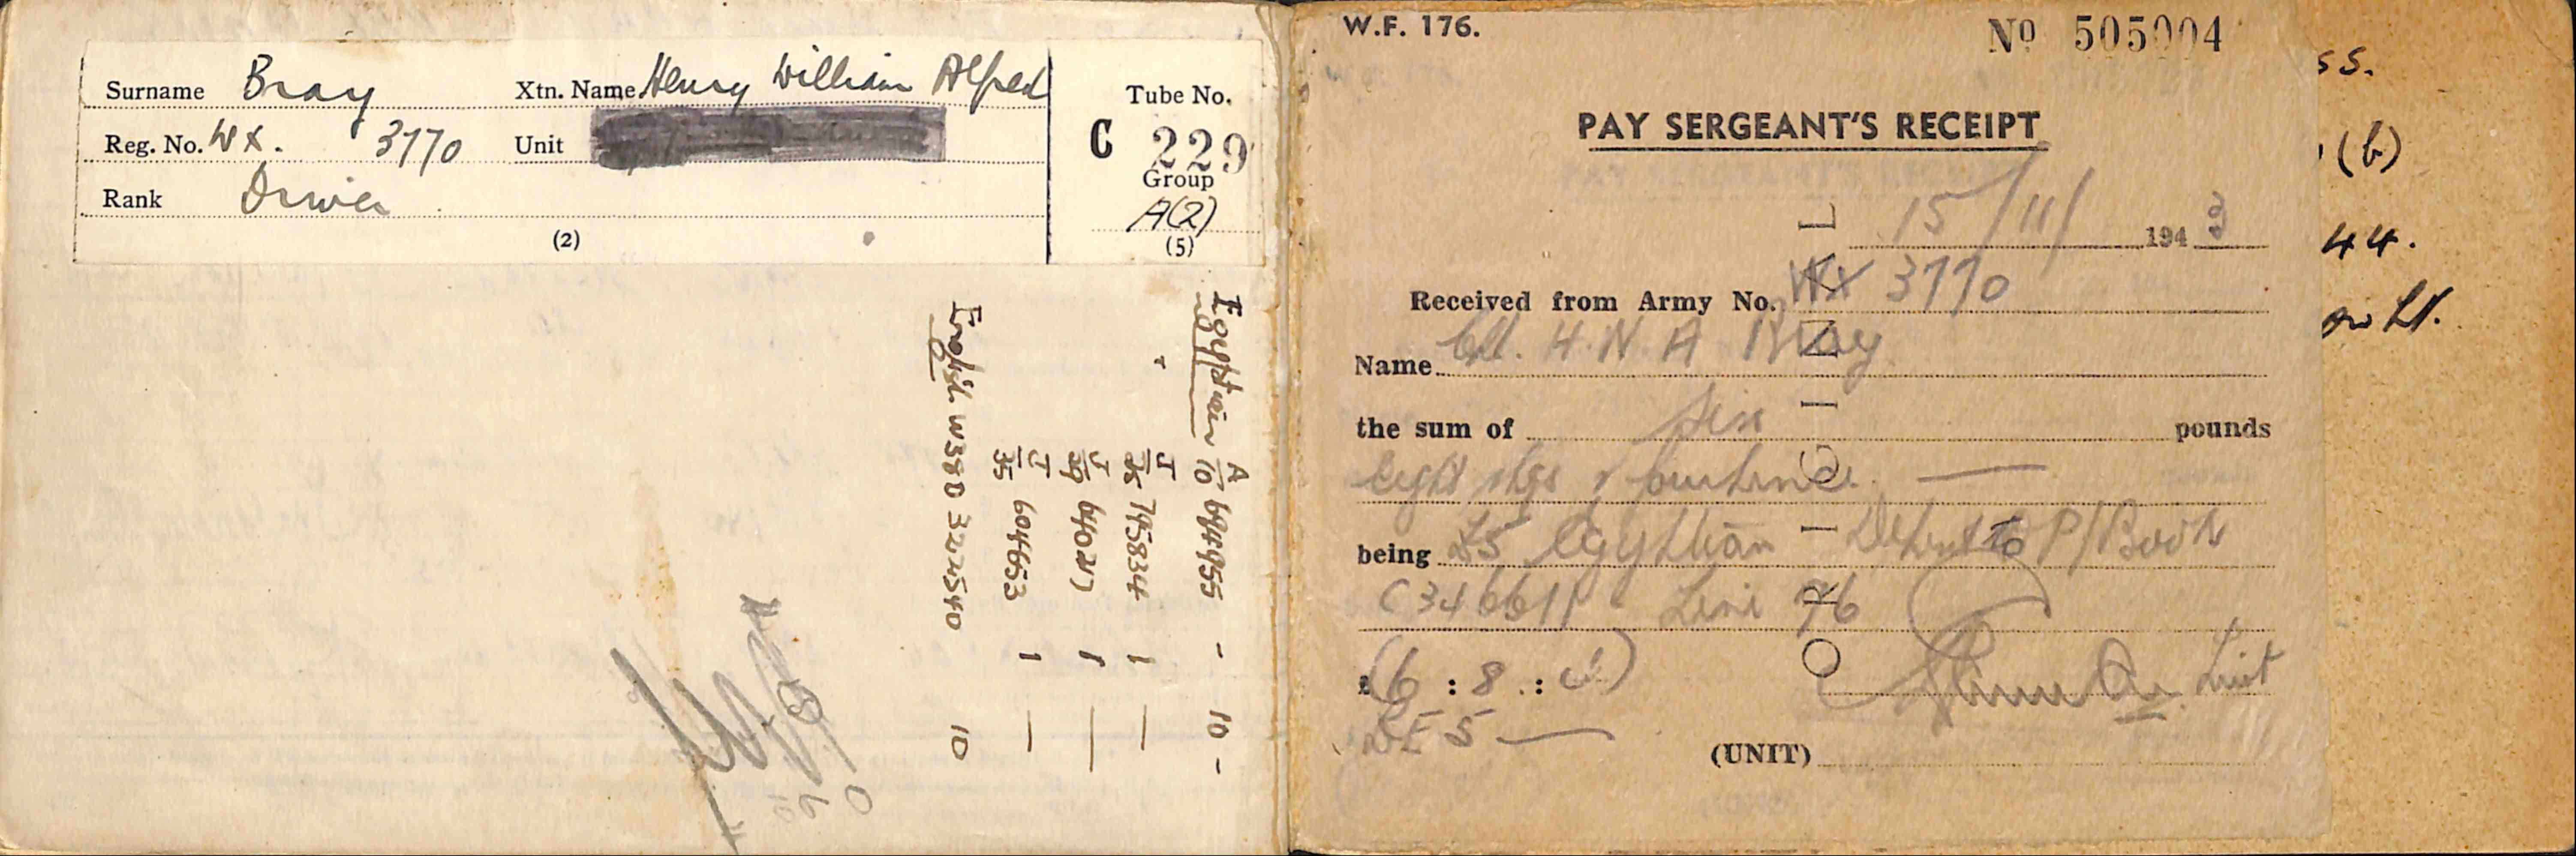 Surname Bray Xtn. Name Henry William Alfred
Reg. No. WX. 3770 Unit
Rank Driver
(2)
Tube No.
C 229
Group
A(2)
(5)
Egyptian A/10 694955 - 10 -
J/36 7458834 1 —
J/39 1 —
J/35 604653 1 —
English W38D 322540 10
W.F. 176.
No 505904
PAY SERGEANT'S RECEIPT
15/11/ 1943
Received from Army No. WX 3770
Name H. W. A Bray
the sum of six pounds
eight
being £5 Egyptian to P/Book
C346611 Line 76
£(6 : 8 : 4)
£E 5 —
Lieut
(UNIT)
ORIGINAL
ss.
(b)
44.